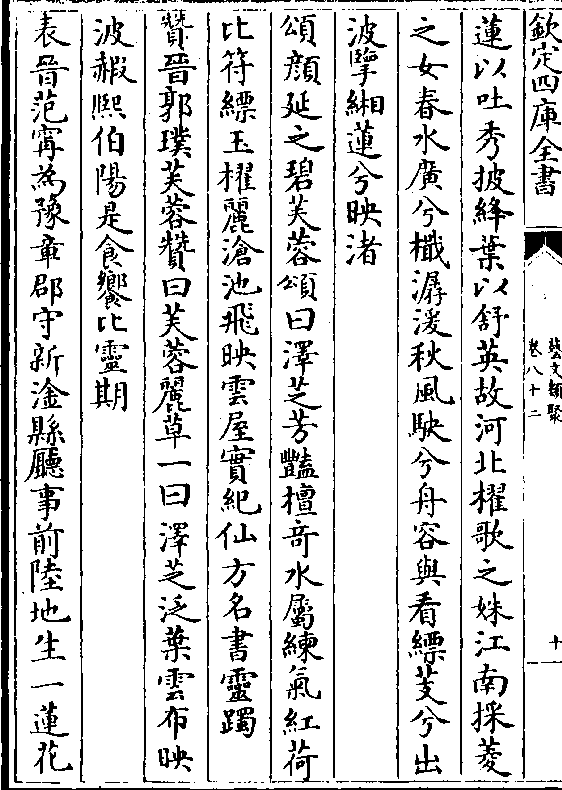 欽定四庫全書
藝文類聚
卷八十二
十
蓮以吐秀披絳葉以舒英故河北櫂歌之姝江南採菱
之女春水廣兮檝潺湲秋風駃兮舟容與看縹芰兮出
波擥緗蓮兮映渚
頌顔延之碧芙蓉頌曰澤芝芳豔擅竒水屬練氣紅荷
比符縹玉櫂麗滄池飛映雲屋實紀仙方名書靈躅
贊晉郭璞芙蓉贊曰芙蓉麗草一曰澤芝泛葉雲布映
波赮熙伯陽是食饗比靈期
表晉范寗為豫章郡守新淦縣廳事前陸地生一蓮花